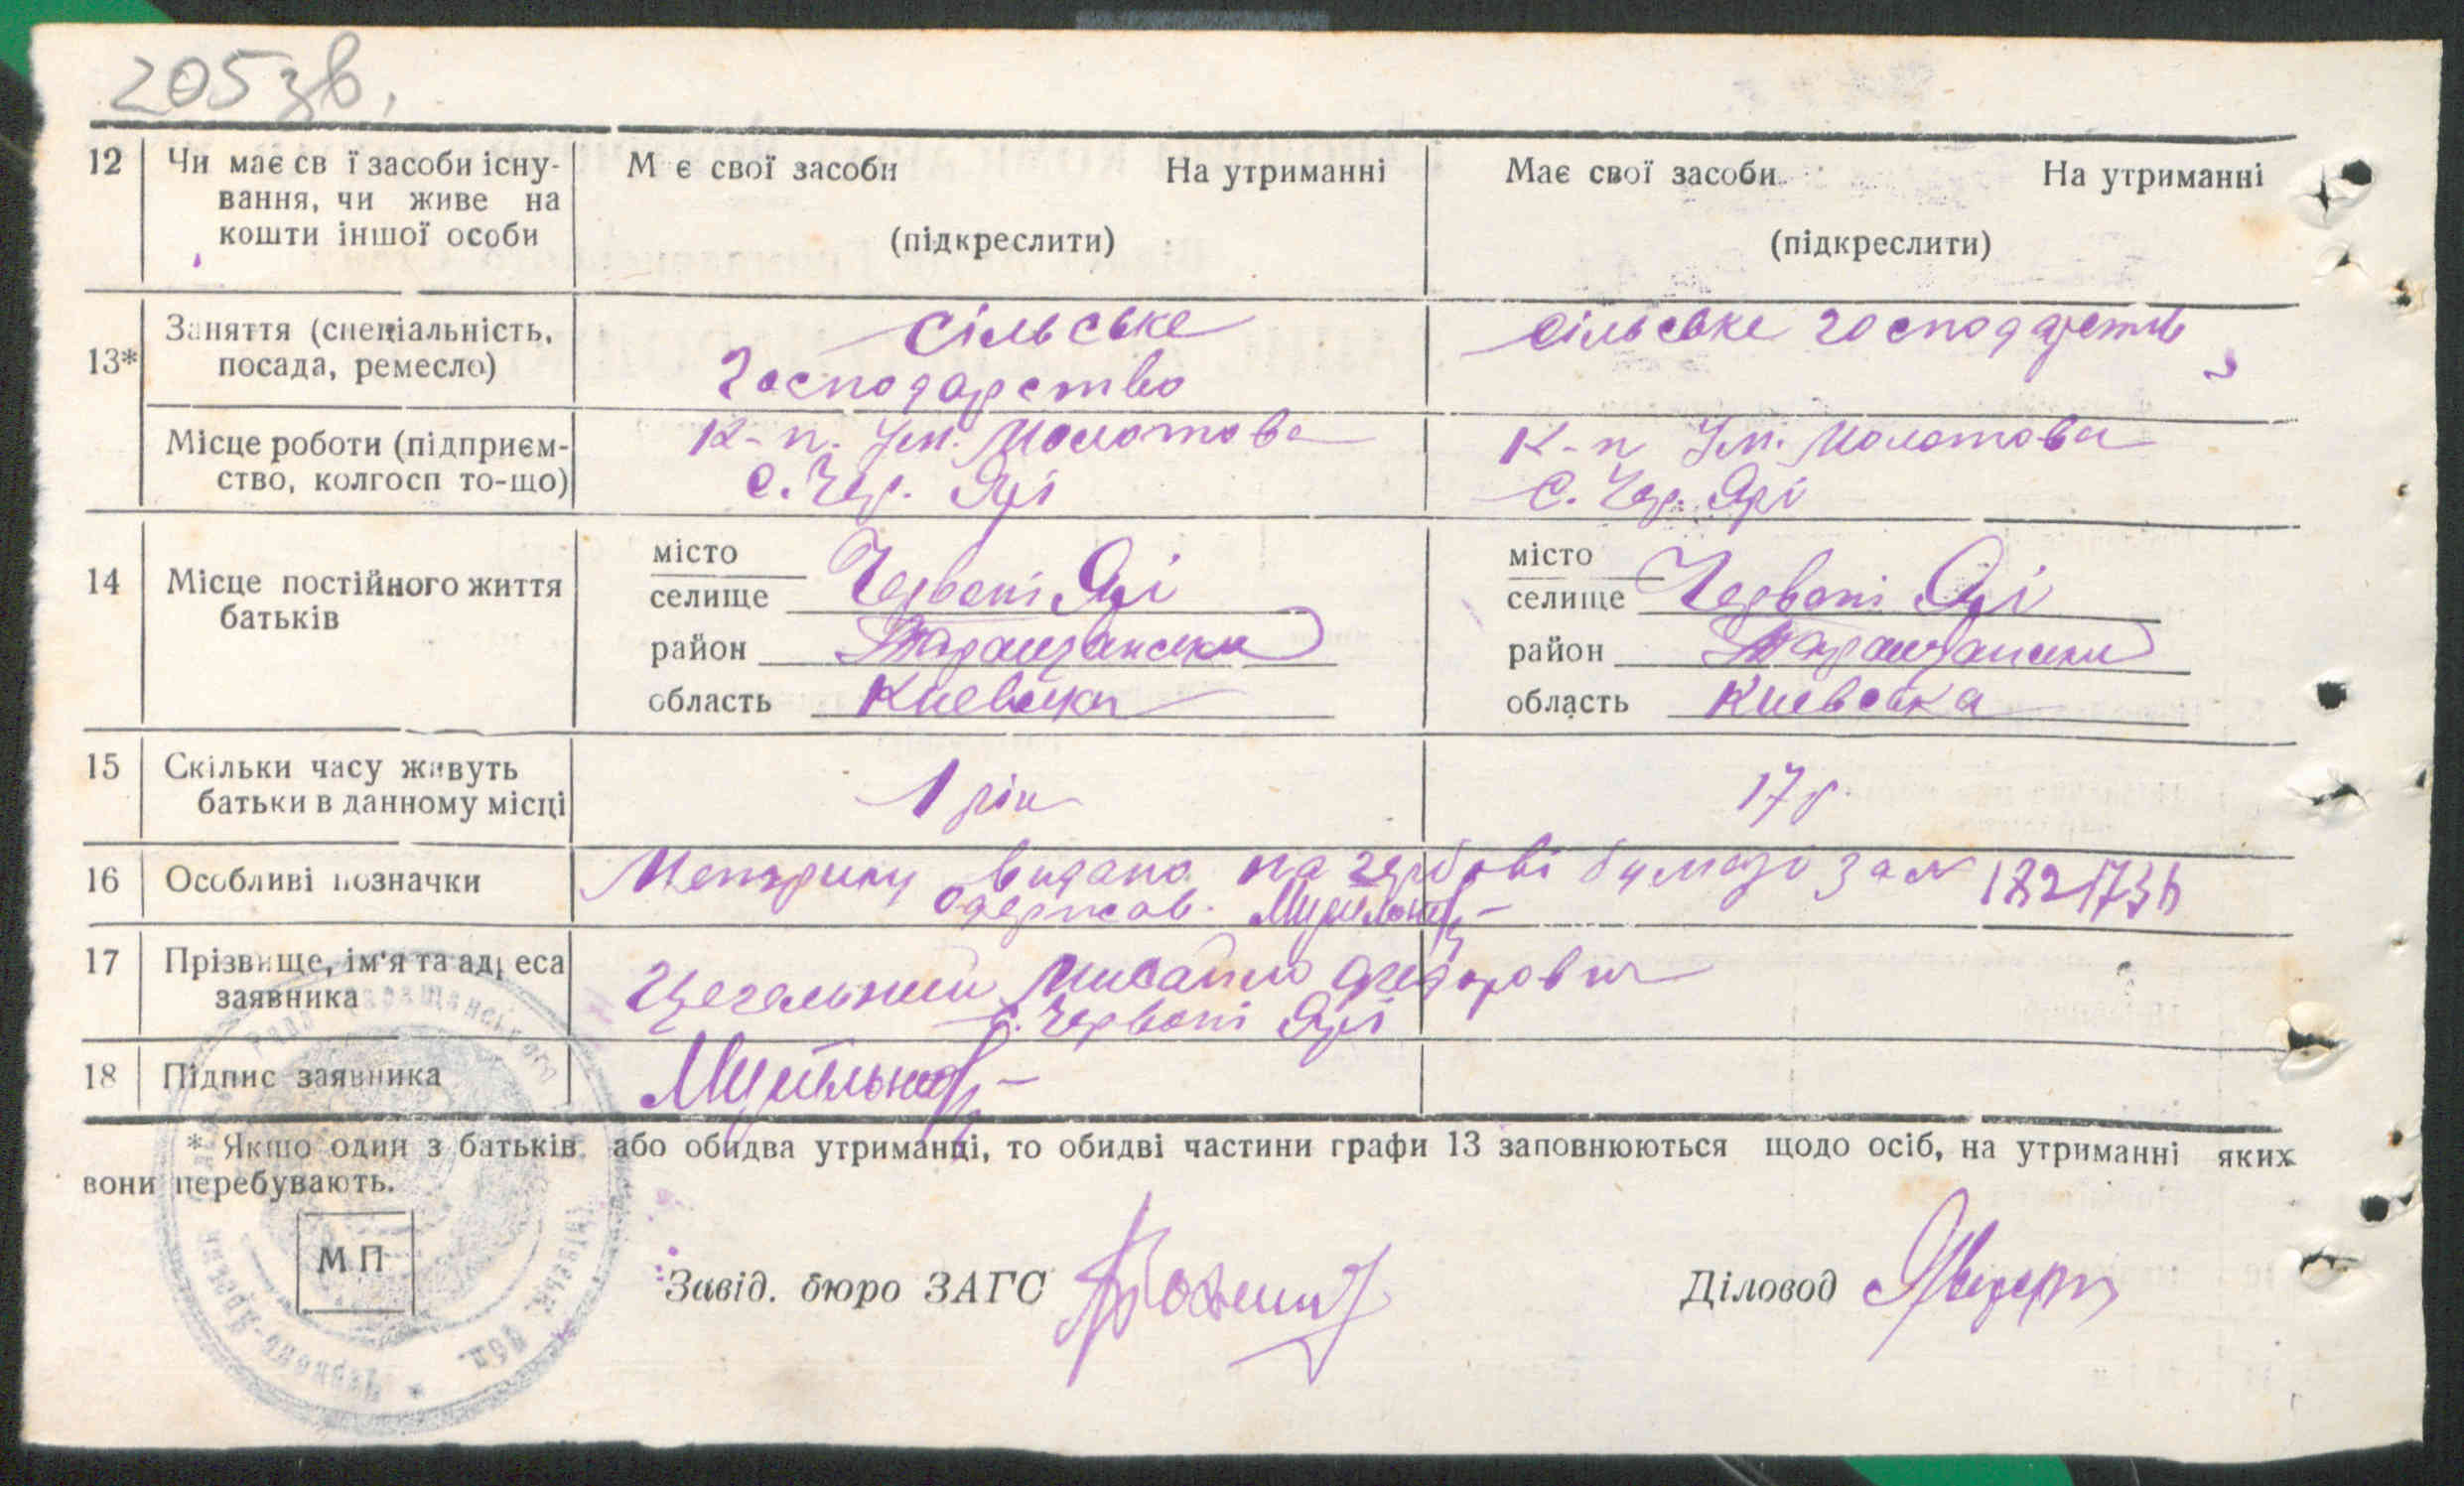 205 зв.
12 Чи має св ї засоби існу- М є свої засоби На утриманні Має свої засоби На утриманні
вання, чи живе на
кошти іншої особи (підкреслити) (підкреслити)
13* Заняття (спеціальність, Сільське сільське господарство
посада, ремесло) Господарство
Місце роботи (підприєм- К-п. Ім. Молотова К-п Ім. Молотова
ство, колгосп то-що) с. Чер. Ярі С. Чер. Ярі
14 Місце постійного життя місто місто
батьків селище Червоні Ярі селище Червоні Ярі
район Таращански район Таращански
область Киевська область Киевська
15 Скільки часу живуть 1 рік 17 р.
батьки в данному місці
16 Особливі позначки Метрику видано на гербові бумазі за № 182173
одержав.
17 Прізвище, ім'я та адреса Цегельний Михайло Федорович
заявника с. Червоні Ярі
18 Підпис заявника
* Якщо один з батьків або обидва утриманці, то обидві частини графи 13 заповнюються щодо осіб, на утриманні яких
вони перебувають.
М П
Завід. бюро ЗАГС Діловод